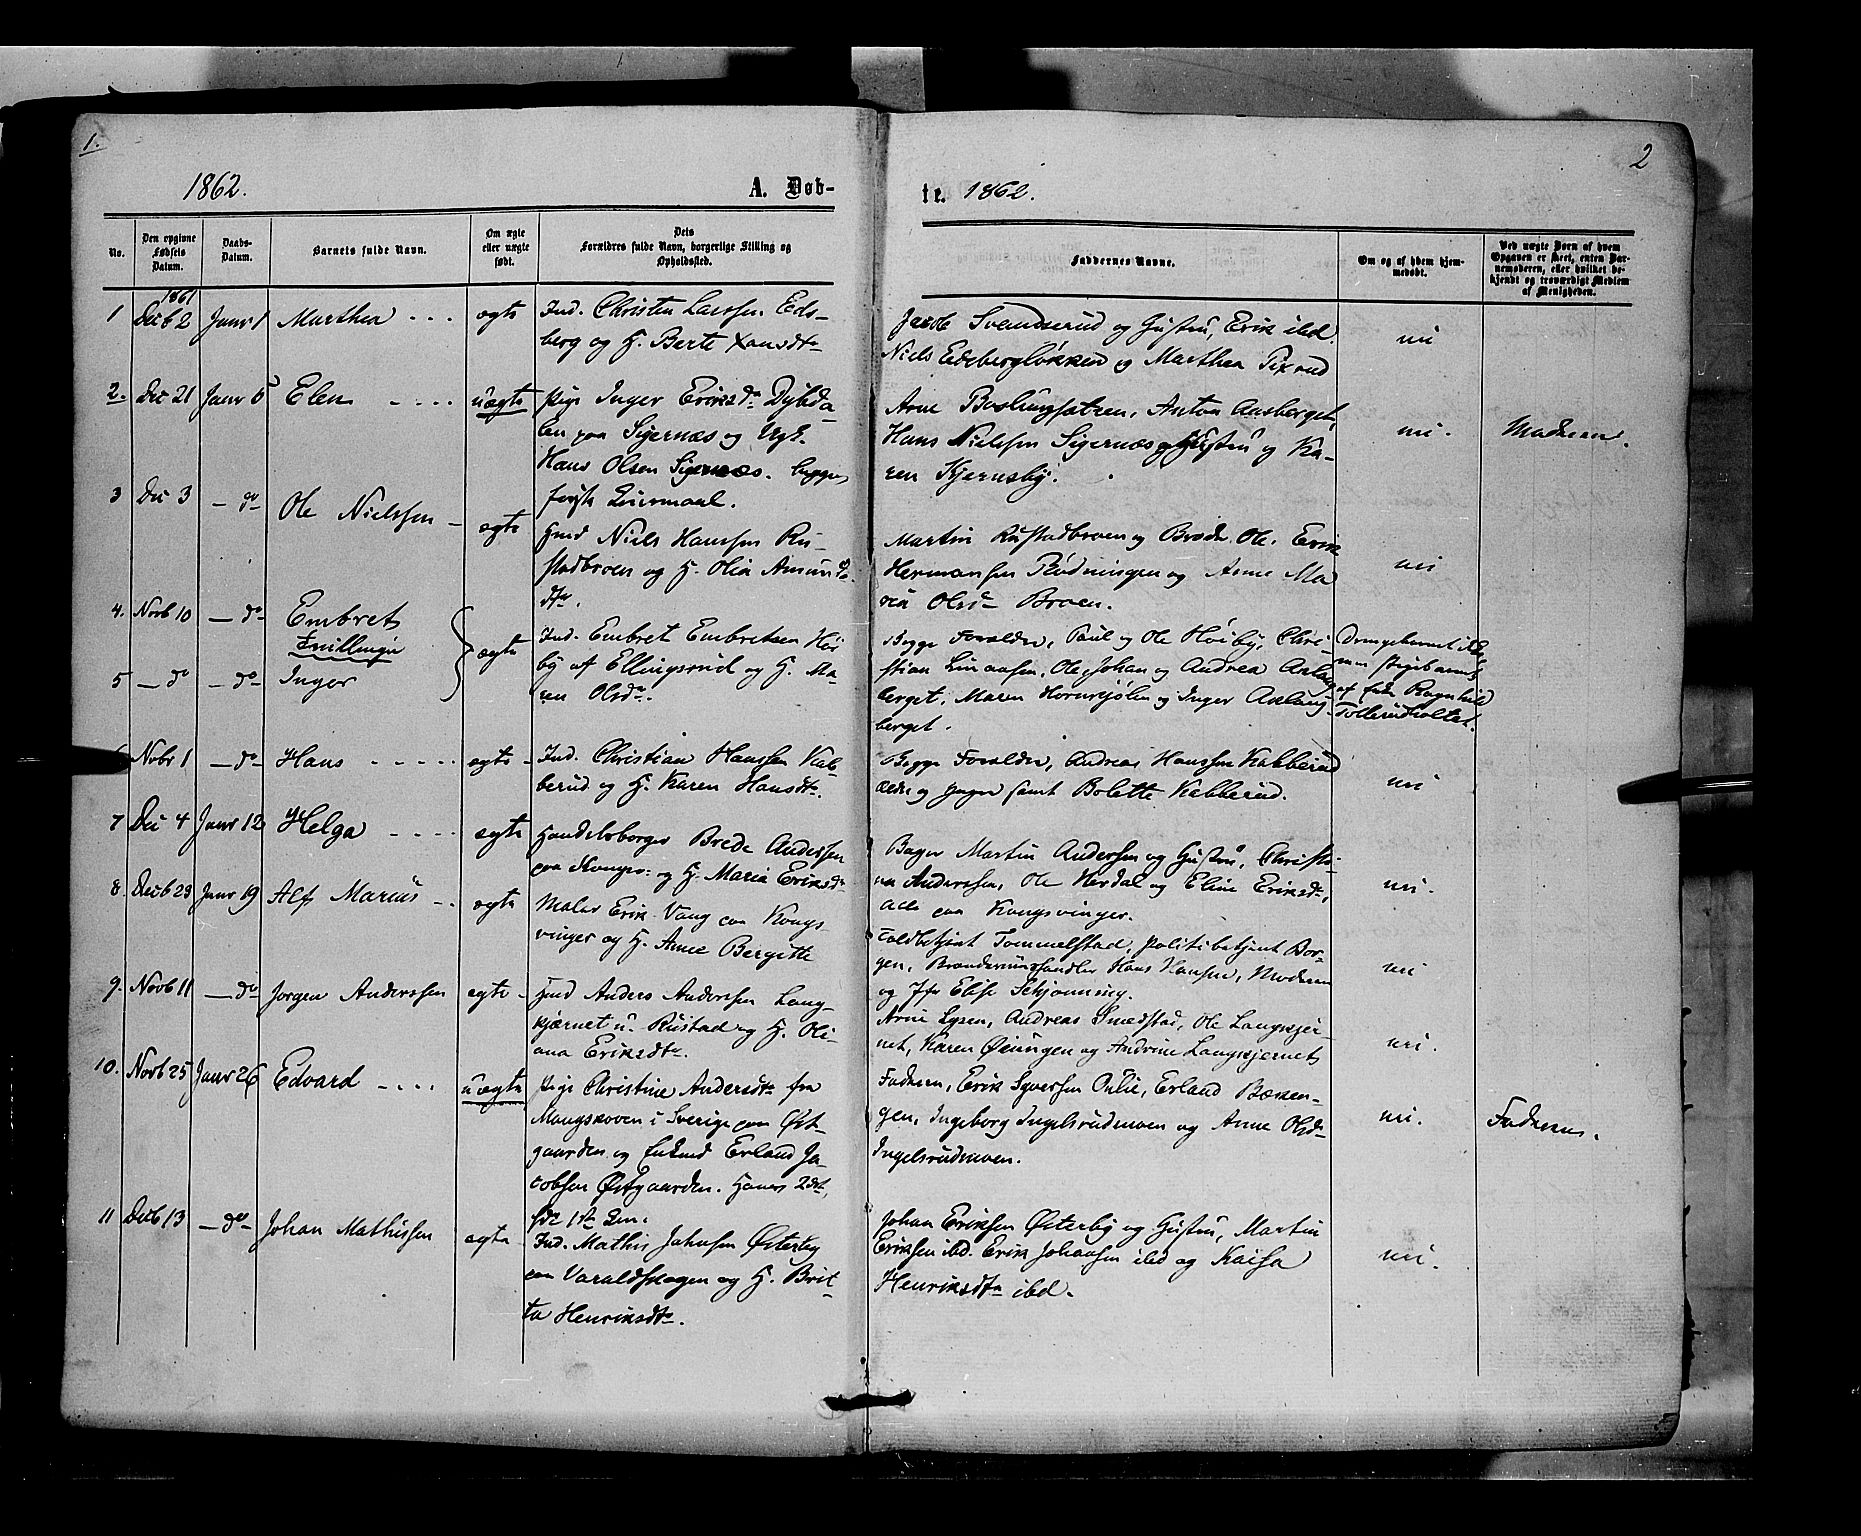 1.
2
1862.
A. Døb-
te. 1862.
No.
Den opgivne Fødsels Datum.
Daabs-Datum.
Barnets fulde Navn.
Om ægte eller uægte født.
Dets Forældres fulde Navn, borgerlige Stilling og Opholdssted.
Faddernes Navne.
Om og af hvem hjemmedøbt.
Ved uægte Børn af hvem Opgaven er skeet, enten Barnemoderen, eller hvilket bekjendt og troværdigt Medlem af Menigheden.
1861
1 Decb 2 Janr 1 Marthea ægte Ind. Christen Larssen Eds-
berg og H. Berte Hansdtr
Jacob Svendserud og Hustru, Erik ibd.
Niels Edsbergløkken og Marthea
ni
2. Dec 21 Janr 6 Elen uægte Pige Inger Eriksdr Dybda-
len paa Sigernæs og Ugk.
Hans Olsen Sigernæs. begges
første Leiermaal.
Arne, Anton Aasberget,
Hans Nielsen Sigernæs og Hustru og Ka-
ren Kjernsby.
ni. Moderen.
3 Dec 3 — do Ole Nielssen ægte Hmd Niels Hanssen Ru-
stadbroen og H. Olia Amunds
dtr.
Martin Rustadbroen og Broder Ole, Erik
Hermansen Rødningen og Anne Ma
ria Olsdr Broen.
ni
4. Novb 10 — do Embret
Tvillinger
5 — do — do Inger
ægte Ind. Embret Embretsen Høi
by af Ellingsrud og H. Ma-
ren Olsdr.
Begge Forældre, Paul og Ole Høiby, Chri-
stian Linaasen, Ole, Johan og Andrea Aslang
berget, Maren Hornsjølen og Inger Aslang
berget.
Drengebarnet ikke
men Pigebarnet
af Enke Ragnhild
Tollerudholtet.
6 Nobr 1 — do Hans ægte Ind. Christian Hanssen Kab-
berud og H. Karen Hansdtr.
Begge Forældre, Andreas Hanssen Kabberud
ældre og yngre samt Bolette Kabberud.
ni
7 Dec 4 Janr 12 Helga ægte Handelsborger Brede Anderssen
paa Kongsv: og H. Maria Eriksdr
Bager Martin Andersen og Hustru, Christi-
ne Anderssen, Ole Herdal og Eline Eriksdtr,
alle paa Kongsvinger.
ni.
8 Decb 23 Janr 19 Alf Marius ægte Maler Erik Vang paa Kongs
vinger og H. Anne Bergitte
Toldbetjent Tommelstad, Politibetjent Bor-
gen, Hans Hansen, Moderen
og Jfr Elise Schjønning.
ni
9. Novb 11 — do Jørgen Anderssen ægte Hmd Anders Anderssen Lang
kjærnet u. Rustad og H. Oli
ana Eriksdtr.
Arne Lysen, Andreas Smedstad, Ole Langkjer-
net, Karen Øiungen og Andrine Langkjernet
ni.
10. Novb 25 Janr 26 Edvard uægte Pige Christine Andersdtr fra
Mangskoven i Sverige paa Øst-
gaarden og Enkmd Erland Ja-
cobsen Østgaarden. Hans 2det,
1ste Lm.
Faderen, Erik Syversen Oulie, Erland Bæken-
gen, Ingeborg Ingelsrudmoen og Anne Olsdr
Ingelsrudmoen.
ni. Faderen.
11 Decb 13 — do Johan Mathissen ægte Ind. Mathis Johnsen Østerby
paa Varaldskogen og H. Brit-
ta Henriksdtr.
Johan Eriksen Østerby og Hustru, Martin
Eriksen ibd. Erik Johansen ibd og Kaisa
Henriksdtr ibd.
ni.